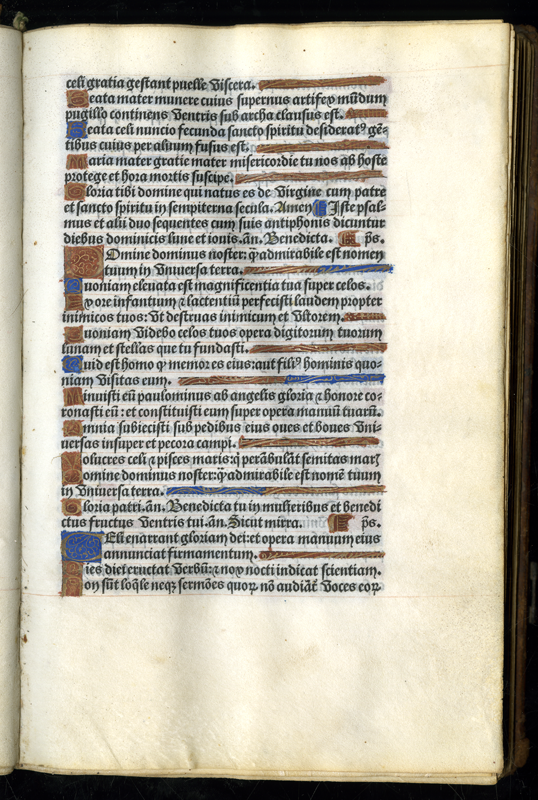 celi gratia gestant puelle viscera.
Beata mater munere cuius supernus artifex mūdum
pugillo continens Ventris sub archa clausus est.
Beata celi nuncio fecunda sancto spiritu desideratꝰ gē-
tibus cuius per aluum fusus est.
Maria mater gratie mater misericordie tu nos ab hoste
protege et hora mortis suscipe.
Gloria tibi domine qui natus es de Virgine cum patre
et sancto spiritu in sempiterna secula. Amen Iste psal-
mus et alii duo sequentes cum suis antiphonis dicuntur
diebus dominicis lune et iouis. añ. Benedicta. p̄s.
Domine dominus noster: q̄ admirabile est nomen
tuum in Vniuersa terra.
Quoniam eleuata est magnificentia tua super celos.
Ex ore infantium ⁊ lactentiū perfecisti laudem propter
inimicos tuos: Vt destruas inimicum et Vltorem.
Quoniam Videbo celos tuos opera digitorum tuorum
lunam et stellas que tu fundasti.
Quid est homo ꝙ memor es eius: aut filiꝰ hominis quo-
niam Visitas eum.
Minuisti eū paulominus ab angelis gloria ⁊ honore co-
ronasti eū: et constituisti eum super opera manuū tuarū.
Omnia subiecisti sub pedibus eius oues et boues Vni-
uersas insuper et pecora campi.
Volucres celi ⁊ pisces maris: q̄ perābulāt semitas marꝭ
Domine dominus noster: q̄ admirabile est nomē tuum
in Vniuersa terra.
Gloria patri. añ. Benedicta tu in mulieribus et benedi
ctus fructus Ventris tui. añ. Sicut mirra. p̄s.
Celi enarrant gloriam dei: et opera manuum eius
annunciat firmamentum.
Dies diei eructat Verbū: ⁊ nox nocti indicat scientiam.
Non sūt loq̄le neqꝫ sermōes quoꝝ nō audiāt᷑ Voces eoꝝ